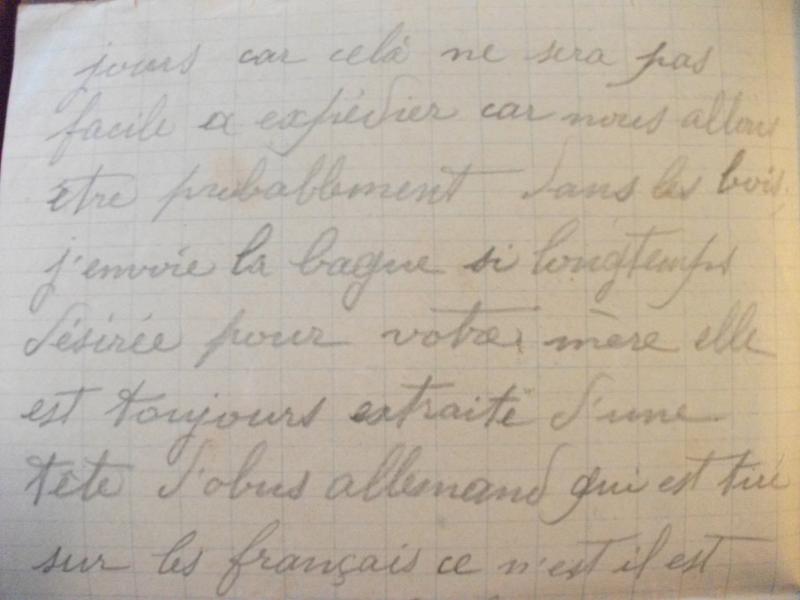 jours car celà ne sera pas
facile a expédier car nous allons
etre probablement dans les bois
j'envoie la bague si longtemps
désirée pour votre mère elle
est toujours extraite d'une
tête d'obus allemand qui est tiré
sur les français ce n'est il est